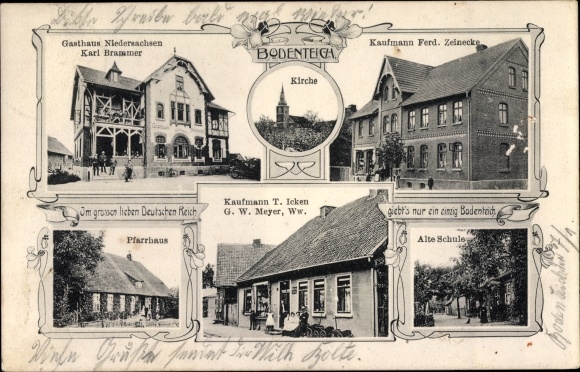 Bitte Schreibe bald mal wieder!
Gasthaus Niedersachsen
Karl Brammer
BODENTEICH.
Kirche
Kaufmann Ferd. Zeinecke
Im grossen lieben Deutschen Reich
giebt's nur ein einzig Bodenteich.
Pfarrhaus
Kaufmann T. Icken
G. W. Meyer, Ww.
Alte Schule
Viele Grüße sendet Dir